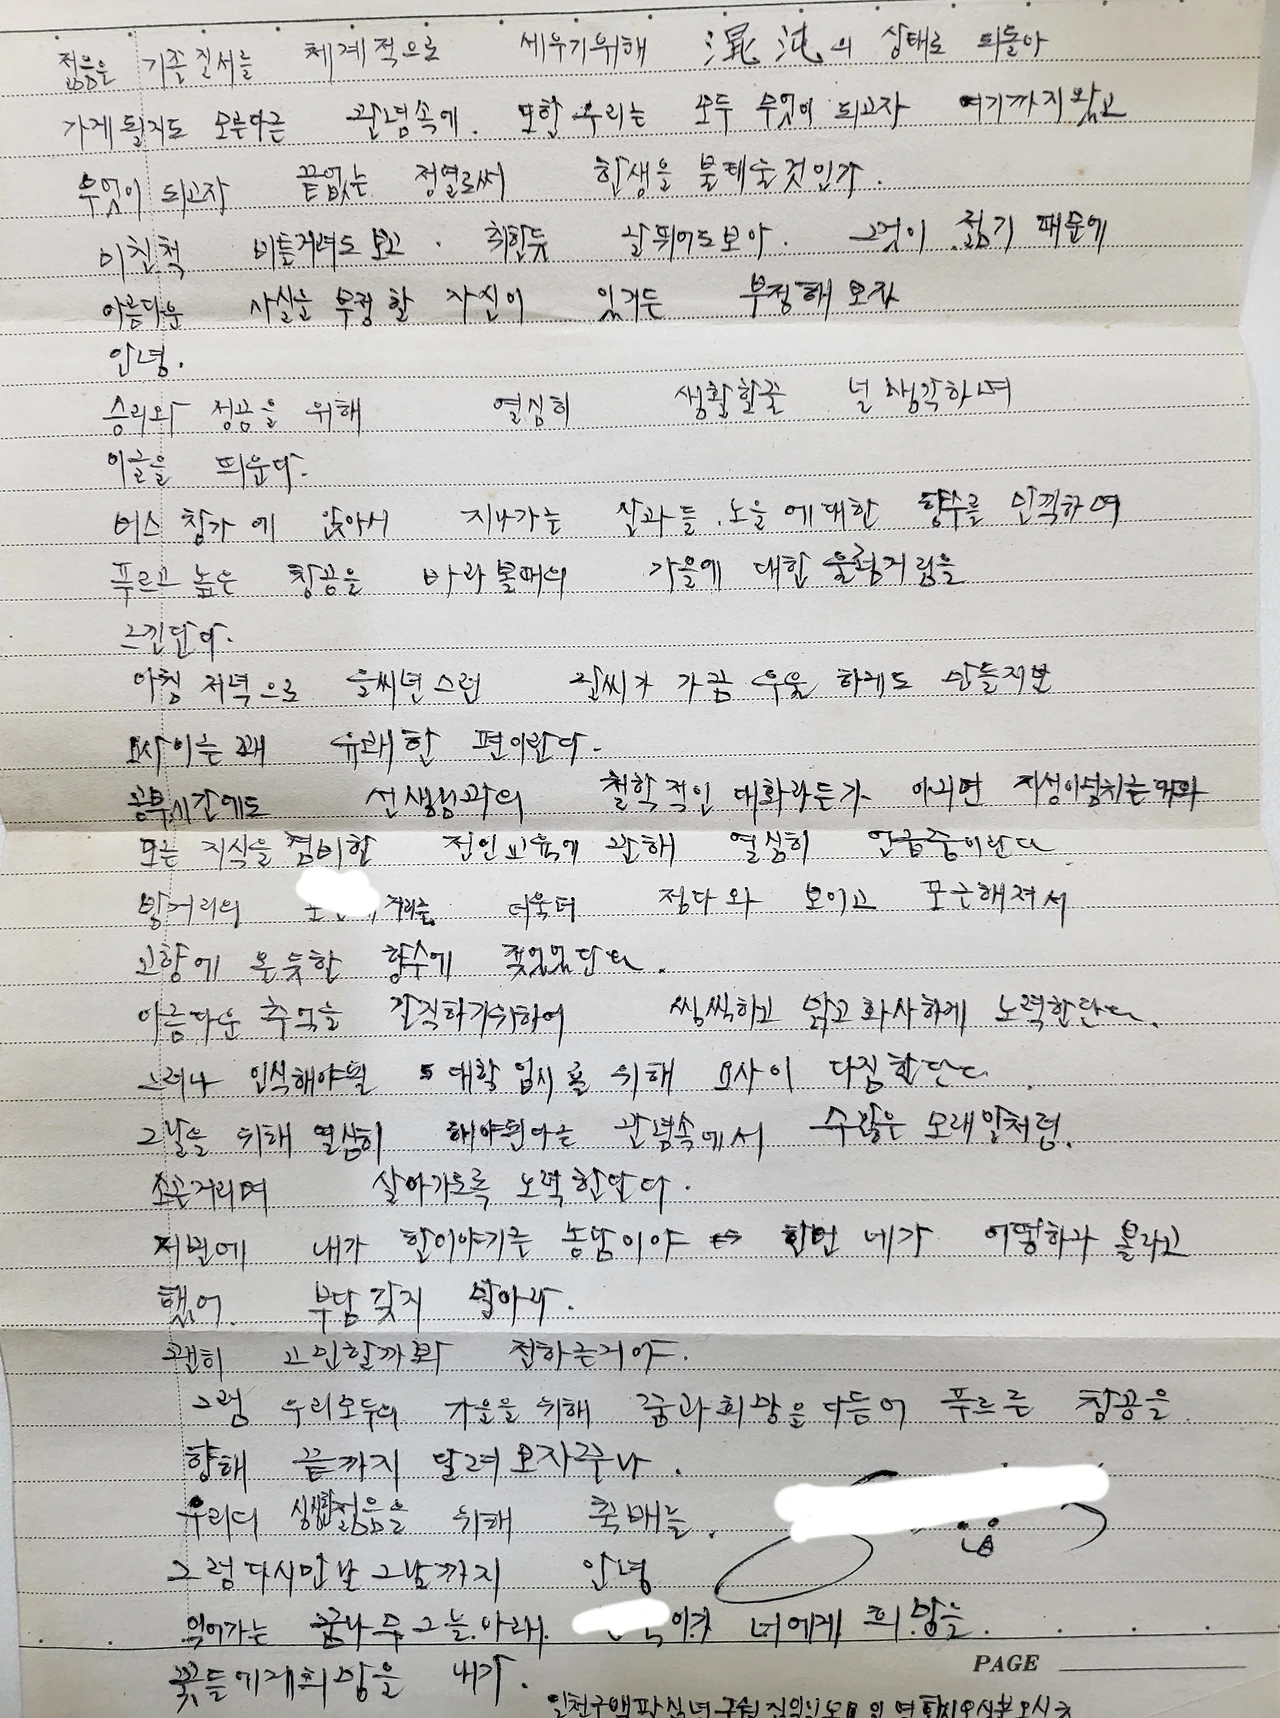 젊음은 기존질서를 체계적으로 세우기위해 混沌의 상태로 되돌아
가게 될지도 모른다는 관념속에. 또한 우리는 모두 무엇이 되고자 여기까지 왔고
무엇이 되고자 끝없는 정열로써 한생을 불태울것인가.
미친척 비틀거려도 보고. 취한듯 날뛰어도보아. 그것이 젊기 때문에
아름다운 사실을 부정할 자신이 있거든 부정해 보자
안녕.
승리와 성공을 위해 열심히 생활할줄 널 생각하며
이글을 띄운다.
버스 창가에 앉아서 지나가는 산과들. 노을에대한 향수를 만끽하며
푸르고 높은 창공을 바라볼때의 가을에 대한 울렁거림을
느낀단다.
아침 저녁으로 을씨년스런 날씨가 가끔 우울 하게도 만들지만
요사이는 꽤 유쾌한 편이란다.
공부시간에도 선생님과의 철학적인 대화라든가 아니면 지성이넘치는
모든 지식을 겸비한 전인교육에 관해 열심히 언급중이란다
밤거리의 거리를 더욱더 정다와 보이고 포근해져서
고향에 온듯한 향수에 젖었었단다.
아름다운 추억을 간직하기위하여 씩씩하고 맑고 화사하게 노력한단다.
그러나 인식해야될 대학 입시를 위해 요사이 다짐한단다
그날을 위해 열심히 해야된다는 관념속에서 수많은 모래알처럼.
소근거리며 살아가도록 노력한단다.
저번에 내가 한이야기는 농담이야 ↔ 한번 네가 어떻하나 볼라고
했어. 부담갖지 말아라.
괜히 고민할까봐 전하는거야.
그럼 우리모두의 가을을 위해 꿈과희망을 다듬어 푸르른 창공을
향해 끝까지 달려보자꾸나.
우리의 싱싱한젊음을 위해 축배를.
그럼다시만날 그날까지 안녕
익어가는 꿈나무그늘.아래. 이가 너에게 희망을.
꽃들에게희망을 내가.
PAGE
일천구백팔십년 구월